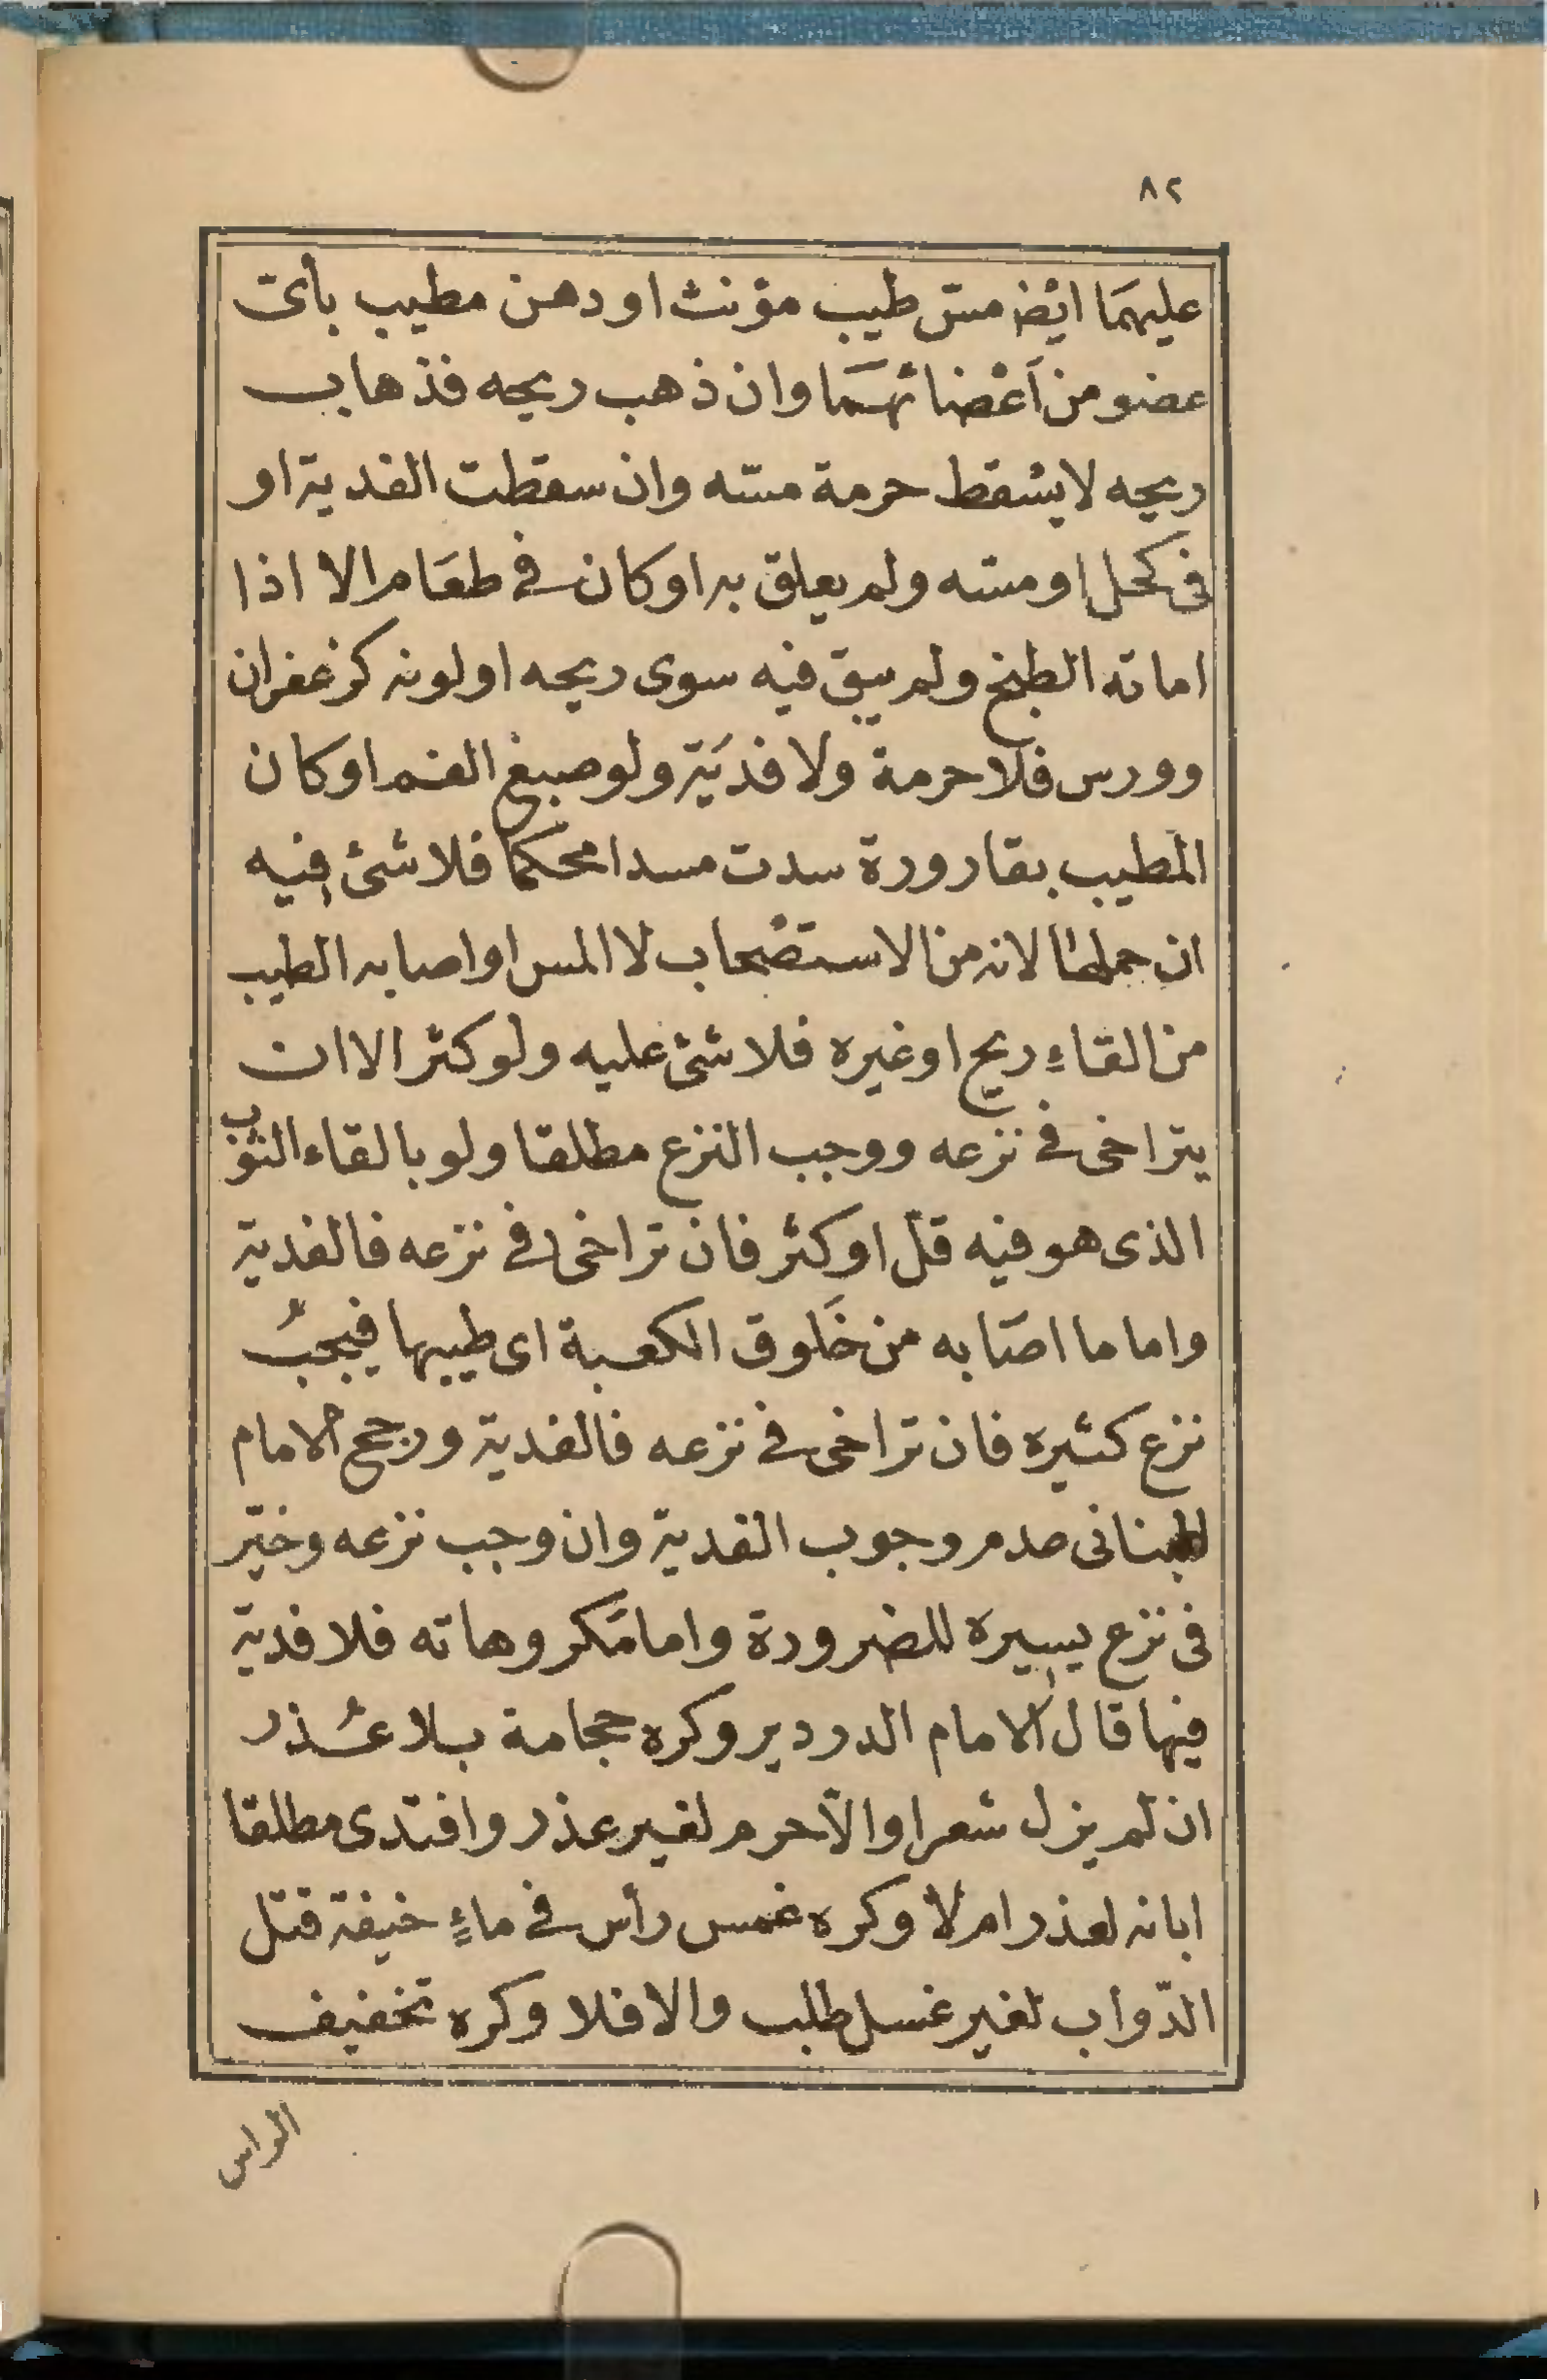 ٨٢
عليهمَا ايْضا مسّ طيب مؤنث او دهن مطيب بأىّ
عضو من اَعْضائهمَا وان ذهب ريحه فذهاب
ريحه لا يسْقط حرمة مسّه وان سقطت الفدية او
فى كحل او مسّه ولم يعلق به او كان فى طعَام الا اذا
اماته الطبخ ولم يبق فيه سوى ريحه او لونه كزعفران
وورس فلا حرمة ولا فديَة ولو صبغ الفم او كان
المطيب بقارورة سدت مسدا محكما فلا شئ فيه
ان حملها لانه من الاستصْحاب لا المس او اصابه الطيب
من القاءِ ريح او غيره فلا شئ عليه ولو كثر الا ان
يتراخى فى نزعه ووجب النزع مطلقا ولو بالقاء الثوب
الذى هو فيه قلّ او كثر فان تراخى فى نزعه فالفدية
واما ما اصَابه من خَلوق الكعبة اى طيبها فيجبُ
نزع كثيره فان تراخى فى نزعه فالفدية ورجح الامام
البنانى عدم وجوب الفدية وان وجب نزعه وخيّر
فى نزع يسيره للضرورة واما مَكروهاته فلا فدية
فيها قال الامام الدردير وكره حجامة بلا عُذر
ان لم يزل شعرا والّا حرم لغير عذر وافتدى مطلقا
ابانه لعذر ام لا وكره غمس رأس فى ماءٍ خيفة قتل
الدّواب لغير غسل طلب والا فلا وكره تخفيف
الراس